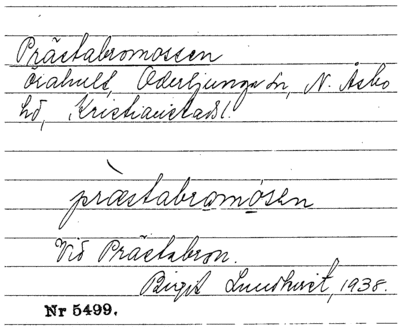 Prästabromossen
Örahult, Oderljunga sn, N. Åsbo
hd, Kristianstads l.
præstabromosen
Vid Prästabron.
Birgit Lundqvist, 1938.
Nr 5499.